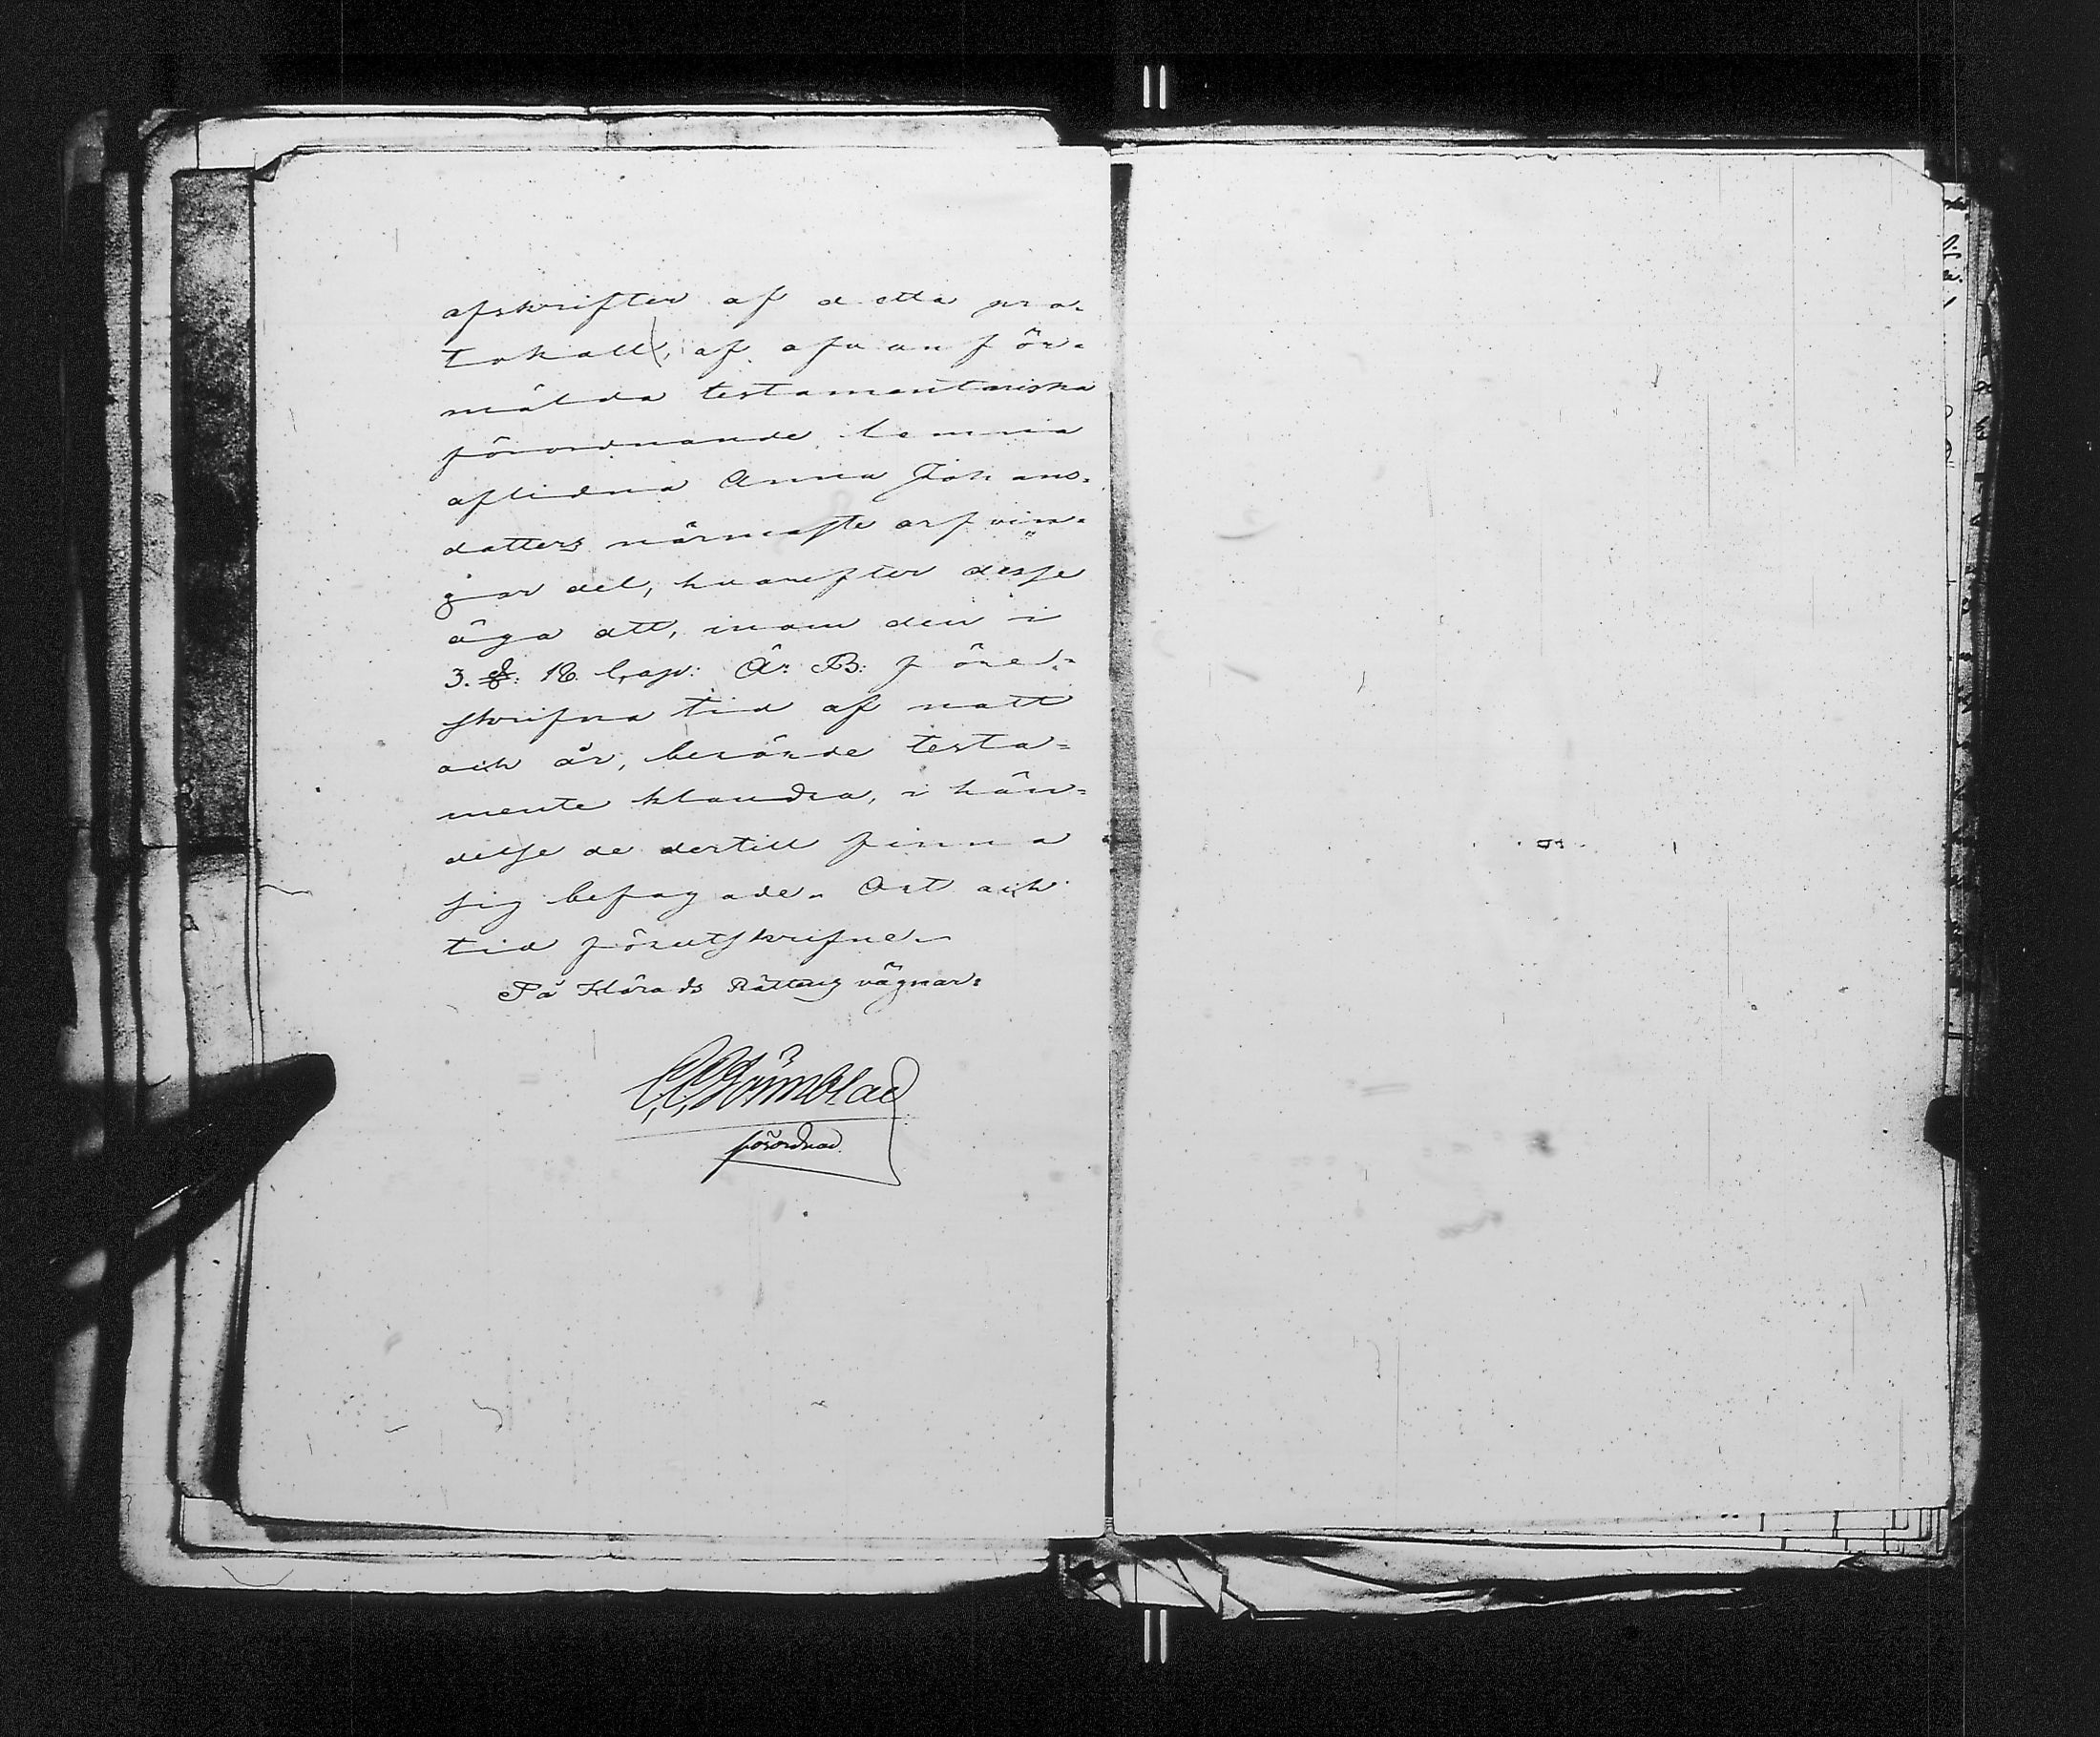 afskrifter af detta pro-
tokoll, af ofvanför-
mälda testamentariska
förordnande lemna
aflidna Anna Johans-
dotters närmaste arfvin-
gar del, hvarefter desse
äga att, inom den i
3. §: 18 Cap: Ä: B: före-
skrifna tid af natt
och år, berörde testa-
mente klandra, i hän-
delse de dertill finna
sig befogade. Ort och
tid förutskrifne.
På Härads Rättens vägnar:
förordnad.